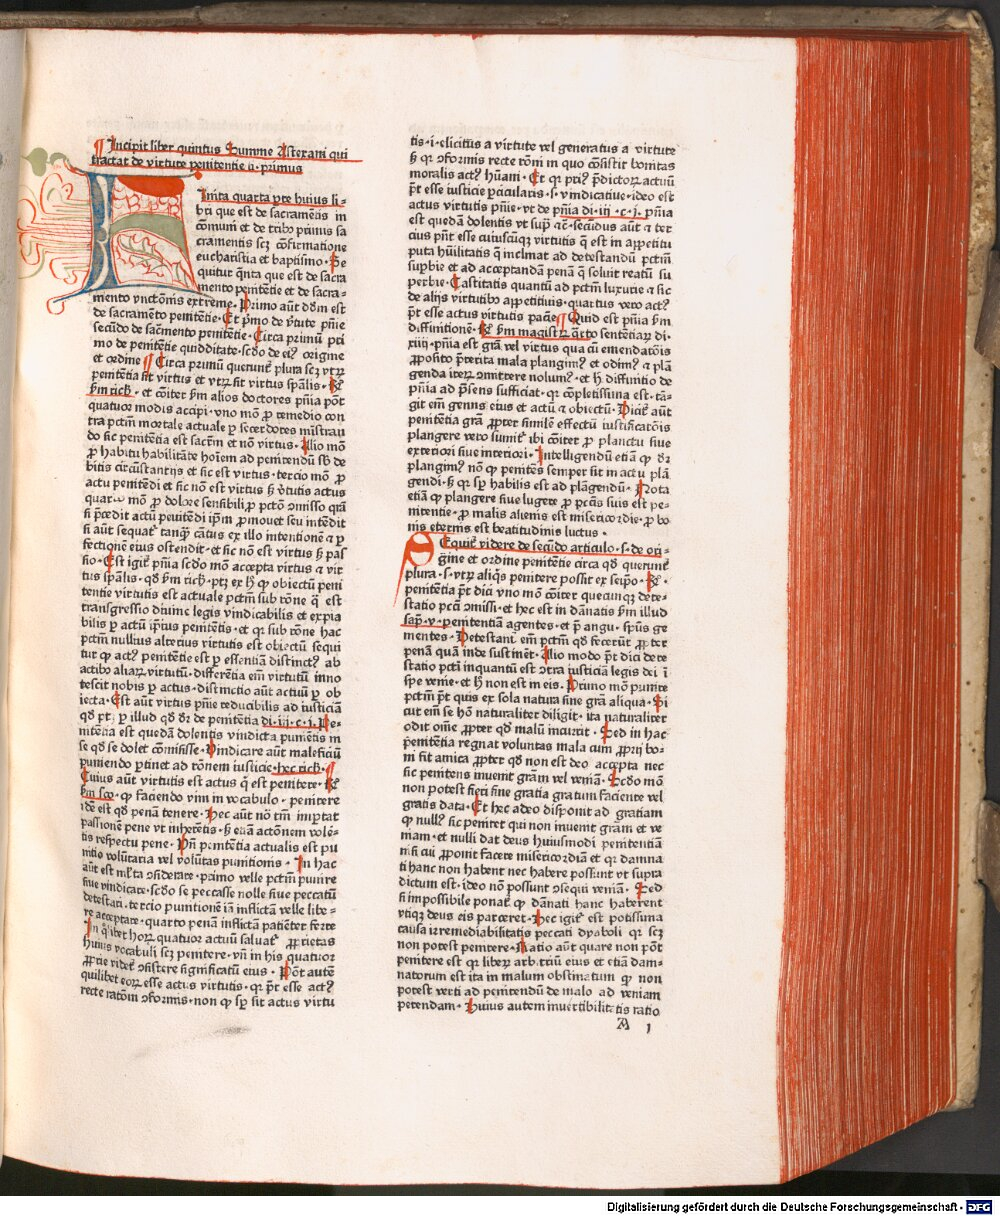 Incipit liber quintus Summe Astexani qui
tractat de virtute penitentie ⁊ primus
Inita quarta pte huius li-
bri que est de sacramētis in
cōmuni et de tribꝰ primis sa
cramentis scꝫ cōfirmatione
eucharistia et baptismo · Se
quitur qͥnta que est de sacra
mento penitētie et de sacra-
mento vnctiōnis extreme · Primo aūt dōm est
de sacramēto penitētie · Et pͥmo de v̄tute pn̄ie
secūdo de sac̄mento penitētie · Circa primū pri
mo de penitētie quidditate · scd̄o de eiꝰ origine
et ordine ¶ Circa primū querunt᷑ plura scꝫ vtꝝ
penitētia sit virtus et vtꝝ sit virtus spālis · ℞
ẜm rich̄ · et cōiter ẜm alios doctores pn̄ia pōt
quatuor modis accipi · vno mō ꝓ remedio con
tra pctm̄ mortale actuale ꝑ sacerdotes mīstran
do sic penitētia est sacrm̄ et nō virtus · Alio mō
ꝓ habitu habilitāte hoīem ad penitendū sb̄ de
bitis circūstantijs et sic est virtus · tercio mō ꝓ
actu penitēdi et sic nō est virtus ẜ v̄tutis actus
quarto mō ꝓ dolore sensibili ꝓ pctō ↄmisso qͥ
si p̄cedit actū penitēdi ip̄m ꝓmouet seu intēdit
si aūt sequat᷑ tanqͣꝫ cātus ex illo intentionē ⁊ ꝑ
fectionē eius ostendit · et sic nō est virtus ẜ pas
sio · Est igit᷑ pn̄ia scd̄o mō accepta virtus ⁊ vir
tus spālis · qd̄ ẜm rich̄ · ptꝫ ex hͦ ꝙ obiectū peni
tentie virtutis est actuale pctm̄ sub rōne qͣ est
transgressio diuine legis vindicabilis et expia
bilis ꝑ actū ip̄sius penitētis · et qꝛ sub rōne hac
pctm̄ nullius alterius virtutis est obiectū sequi
tur ꝙ actꝰ penitētie est ꝑ essentiā distinctꝰ ab
actibꝰ aliaꝝ virtutū · differētia em̄ virtutū inno
tescit nobis ꝑ actus · distinctio aūt actuū ꝑ ob
iecta · Est aūt virtus pn̄ie reducibilis ad iusticiā
qd̄ ptꝫ ꝑ illud qd̄ dꝛ de penitētia di · iij · c · j · Pe-
nitētia est quedā dolentis vindicta puniens in
se qd̄ se dolet cōmisisse · Vindicare aūt maleficiū
puniendo ꝑtinet ad rōnem iusticie · hec rich̄ · ¶
Cuius aūt virtutis est actus qͥ est penitere · ℞
ẜm sco · ꝙ faciendo vim in vocabulo · penitere
idē est qd̄ penā tenere · Hec aūt nō tm̄ importat
passionē pene vt inherētis · ẜ etiā actōnem volē-
tis respectu pene · Vn̄ penitētia actualis est pu
nitio volūtaria vel volūtas punitionis · In hac
aūt est ml̄ta ↄsiderare · primo velle pctm̄ punire
siue vindicare · scd̄o se peccasse nolle siue peccatū
detestari · tercio punitionē iā inflictā velle libe-
re acceptare · quarto penā inflictā patiēter ferre
In qͦlibet hoꝝ quatuor actuū saluat᷑ ꝓprietas
huius vocabuli scꝫ penitere · vn̄ in his quatuor
ꝓprie videt᷑ ↄsistere significatū eius · Pōt autē
quilibet eoꝝ esse actus virtutis · qꝛ p̄t esse actꝰ
recte ratōni ↄformis · non ꝙ sꝑ sit actus virtu
tis · i · elicitus a virtute vel generatus a virtute
ẜ qꝛ ↄformis recte rōni in quo cōsistit bonitas
moralis actꝰ hūani · Et qꝛ priꝰ p̄dictoꝝ actuū
p̄t esse iusticie ꝑticularis · s · vindicatiue · ideo est
actus virtutis pn̄ie · vt de pn̄ia di · iij · c · j · pn̄ia
est quedā dolentis vt supͣ ⁊c̄ · secūdus aūt ⁊ ter
cius pn̄t esse cuiuscūqꝫ virtutis qͥ est in appetitu
puta hūilitatis qͥ inclinat ad detestandū pctm̄
suꝑbie et ad acceptandā penā qͣ soluit reatū su
perbie · Castitatis quantū ad pctm̄ luxurie ⁊ sic
de alijs virtutibꝰ appetitiuis · quartus vero actꝰ
p̄t esse actus virtutis paciē ¶ Quid est pn̄ia ẜm
diffinitionē · ℞ ẜm magistꝝ qͣrto sententiaꝝ di ·
xiiij · pn̄ia est grā vel virtus qua cū emendatōis
ꝓposito p̄terita mala plangimꝰ et odimꝰ ⁊ plā
genda iteꝝ ↄmittere nolumꝰ · et hͨ diffinitio de
pn̄ia ad p̄sens sufficiat · qꝛ cōpletissima est · tā-
git em̄ genus eius et actū ⁊ obiectū · Dicit᷑ aūt
penitētia grā ꝓpter similē effectū iustificatōis
plangere vero sumit᷑ ibi cōiter ꝓ planctu siue
exteriori siue interiori · Intelligendū etiā ꝙ dꝛ
plangimꝰ nō ꝙ penitēs semper sit in actu plā
gendi · ẜ qꝛ sꝑ habilis est ad plāgendū · Nota
etiā ꝙ plangere siue lugere ꝓ pctīs suis est pe-
nitentie · ꝓ malis alienis est misericordie · ꝓ bo
nis eternis est beatitudinis luctus ·
Sequit᷑ videre de secūdo articulo · s · de ori
gine et ordine penitētie circa qd̄ querunt᷑
plura · s · vtꝝ aliqͥs penitere possit ex seip̄o · ℞ ·
penitētia p̄t dici vno mō cōiter quecunqꝫ dete-
statio pctī ↄmissi · et hec est in dānatis ẜm illud
sap̄ · v · penitentiā agentes · et p̄ angu · sp̄us ge
mentes · Detestant᷑ em̄ pctm̄ qd̄ fecerūt ꝓpter
penā quā inde sustinēt · Alio modo p̄t dici dete
statio pctī inquantū est ↄtra iusticiā legis dei ī
spe venie · et hͨ non est in eis · Primo mō punire
pctm̄ p̄t quis ex sola natura sine grā aliqua · Si
cut em̄ se hō naturaliter diligit · ita naturaliter
odit om̄e ꝓpter qd̄ malū incurrit · Sed in hac
penitētia regnat voluntas mala cum ꝓprij bo-
ni sit amica ꝓpter qd̄ non est deo accepta nec
sic penitens inuenit grām vel veniā · Scd̄o mō
non potest fieri sine gratia gratum faciente vel
gratis data · Et hec adeo disponit ad gratiam
ꝙ nullꝰ sic penitet qui non inuenit grām et ve
niam · et nulli dat deus huiusmodi penitentiā
nisi cui ꝓponit facere misericordiā et qꝛ damna
ti hanc non habent nec habere possunt vt supra
dictum est · ideo nō possunt ↄsequi veniam · Sed
si impossibile ponat᷑ ꝙ dānati hanc haberent
vtiqꝫ deus eis parceret · Hec igit᷑ est potissima
causa irremediabilitatis peccati dyaboli qꝛ scꝫ
non potest penitere · Ratio aūt quare non pōt
penitere est qꝛ liberꝝ arbitriū eius et etiā dam-
natorum est ita in malum obstinatum ꝙ non
potest verti ad penitendū de malo ad veniam
petendam · Huius autem inuertibilitatis ratio
A 1
Digitalisierung gefördert durch die Deutsche Forschungsgemeinschaft - DFG